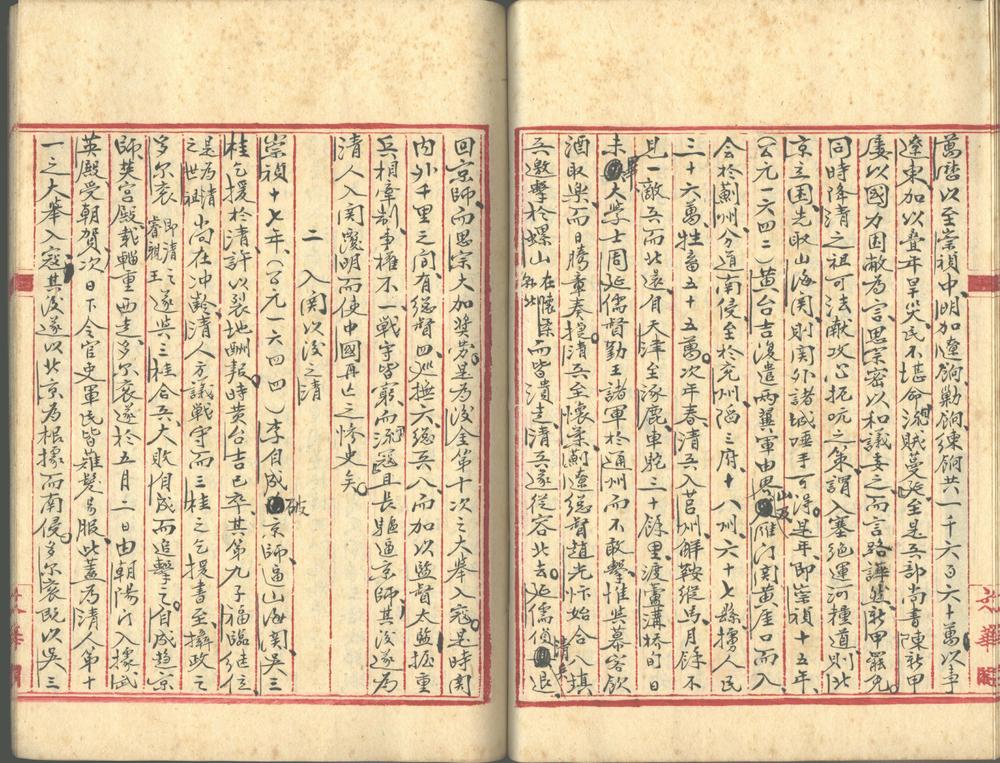 萬歷以至崇禎中明加遼餉勦餉練餉共一千六百六十萬以事
遼東加以疊年旱災民不堪命流賊蔓延至是兵部尚書陳新甲
屢以國力困敝為言思宗密以和議委之而言路譁然新甲罷免
同時降清之祖可法献攻心扼吭之策謂入塞絕運河種道則北
京立困先取山海関則関外諸城唾手可得是年即崇禎十五年
(公元一六四二)黃台吉復遣两翼軍由界山及雁门関黃崖口而入
会於薊州分道南侵至於兖州陷三府十八州六十七縣擄人民
三十六萬牲畜五十五萬次年春清兵入莒州解鞍縱馬月餘不
見一敵兵而北還自天津至涿鹿車駝三十餘里渡蘆溝桥旬日
未畢大学士周延儒督勤王諸軍於通州而不敢擊惟與幕客飲
酒取樂而日騰章奏捷清兵至懷柔薊遼総督趙光忭始合八旗
兵邀擊於螺山在懷柔北而皆潰走清兵遂從容北去延儒偵清兵退
回京師而思宗大加奬劳是為後金第十次之大舉入寇是時関
内外千里之间有総督四巡撫六総兵八而加以監督太監握重
兵相牽制事權不一戰守皆窮而流寇且長驅逼京師其後遂為
清人入関覆明而使中國再亡之慘史矣
二 入関以後之清
崇禎十七年(公元一六四四)李自成破京師逼山海関吳三
桂乞援於清許以裂地酬報時黃台吉已卒其第九子福臨继位
是為清之世祖尚在冲齡清人方議戰守而三桂之乞援書至攝政王
多尔衮即清之睿親王遂與三桂合兵大敗自成而追擊之自成趋京
師焚宮殿載輜重西走多尔衮遂於五月二日由朝陽门入據武
英殿受朝賀次日下令官吏軍民皆薙髮易服此蓋為清人第十
一之大舉入寇其後遂以北京為根據而南侵多尔衮既以吳三